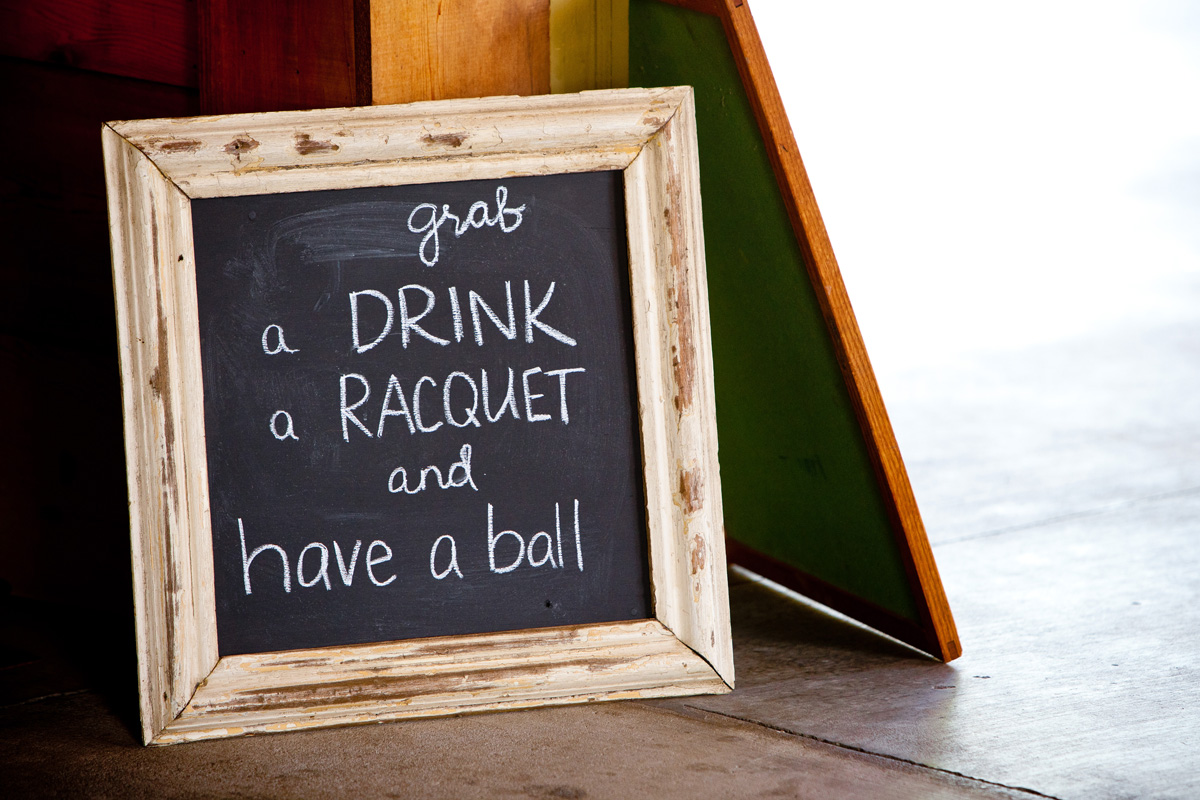 grab
a DRINK
a RACQUET
and
have a ball